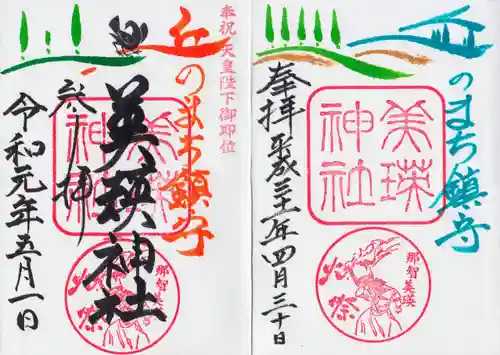 奉祝天皇陛下御即位
丘のまち鎮守
美瑛神社
参拝
令和元年五月一日
美瑛
神社
那智美瑛
火祭
のまち鎮守
美瑛
神社
奉拝
平成三十一年四月三十日
那智美瑛
火祭